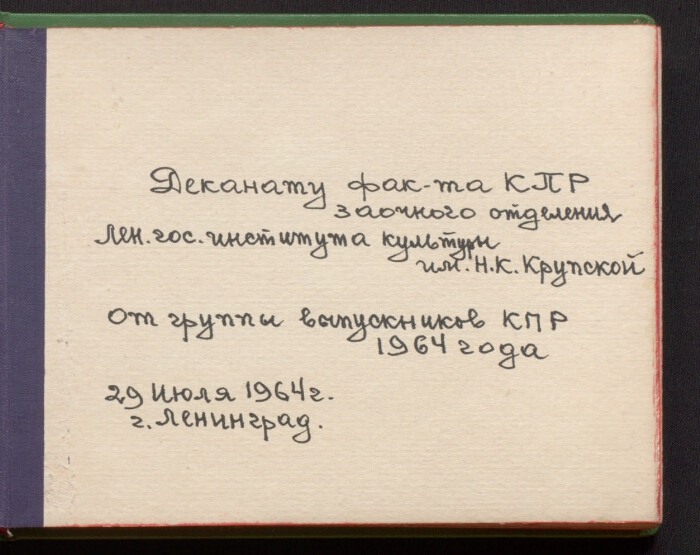 Деканату фак-та КПР
заочного отделения
Лен. гос. института культуры
им. Н.К. Крупской
от группы выпускников КПР
1964 года
29 июля 1964 г.
г. Ленинград.